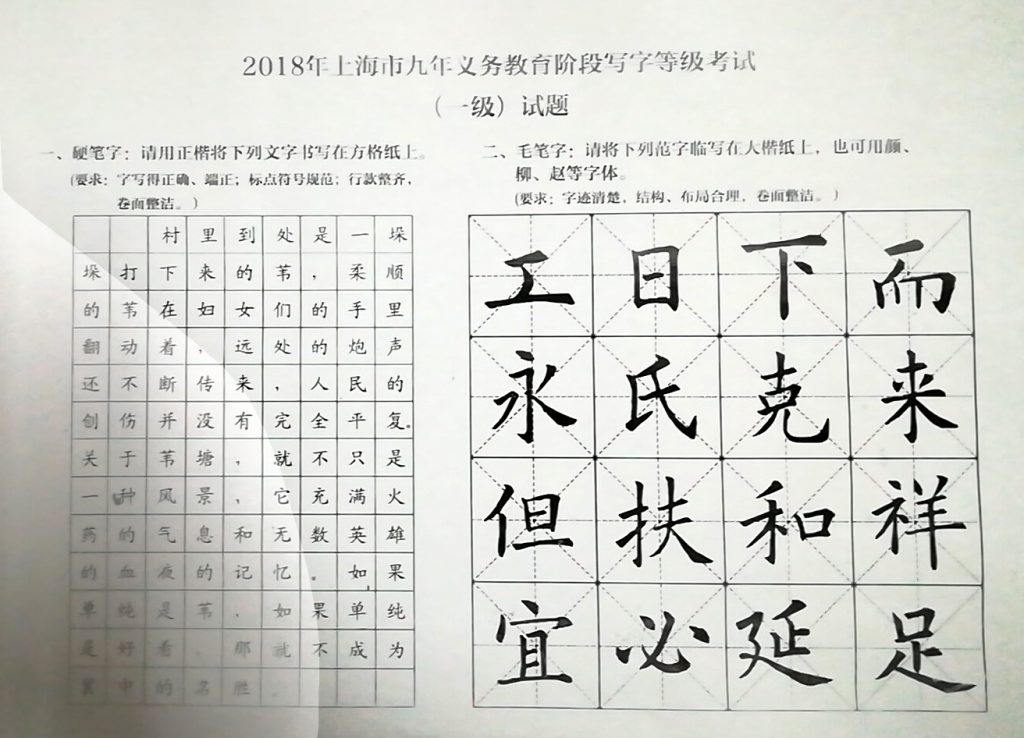 2018年上海市九年义务教育阶段写字等级考试
（一级）试题
一、硬笔字：请用正楷将下列文字书写在方格纸上。
（要求：字写得正确、端正；标点符号规范；行款整齐，
卷面整洁。）
村里到处是一垛
垛打下来的苇，柔顺
的苇在妇女们的手里
翻动着，远处的炮声
还不断传来，人民的
创伤并没有完全平复。
关于苇塘，就不只是
一种风景，它充满火
药的气息和无数英雄
的血液的记忆。如果
单纯是苇，如果单纯
是好看，那就不成为
冀中的名胜
二、毛笔字：请将下列范字临写在大楷纸上，也可用颜、
柳、赵等字体。
（要求：字迹清楚，结构、布局合理，卷面整洁。）
工日下而
永氏克来
但扶和祥
宜必延足